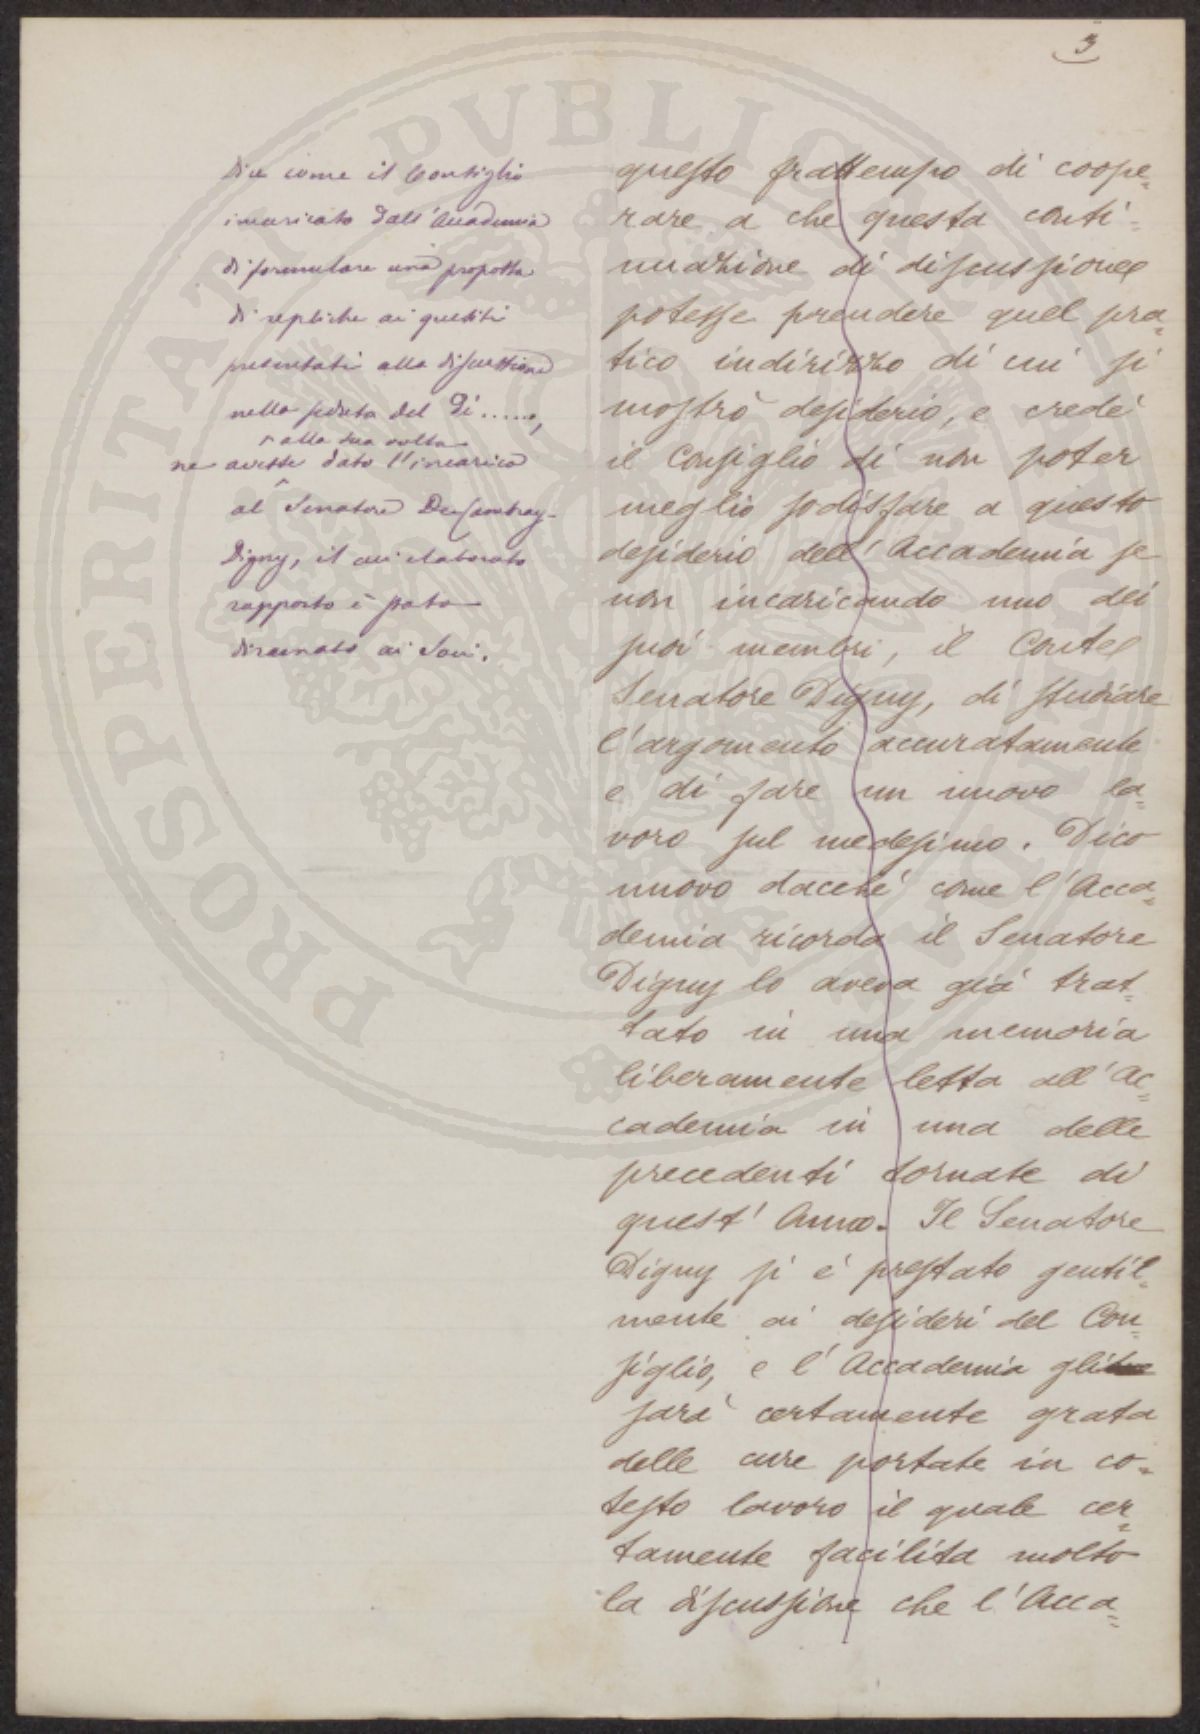 3
Dice come il Consiglio
incaricato dall'Accademia
di formulare una proposta
di repliche ai quesiti
presentati alla discussione
nella seduta del dì ......,
alla sua volta
ne avesse dato l'incarico
al Senatore De Cambray-
Digny, il cui elaborato
rapporto è stato
diramato ai Soci.
questo frattempo di coope=
rare a che questa conti=
nuazione di discussione
potesse prendere quel pra=
tico indirizzo di cui si
mostrò desiderio, e credè
il Consiglio di non poter
meglio sodisfare a questo
desiderio dell'Accademia se
non incaricando uno dei
suoi membri, il Conte
Senatore Digny, di studiare
l'argomento accuratamente
e di fare un nuovo la=
voro sul medesimo. Dico
nuovo dacchè come l'Acca=
demia ricorda il Senatore
Digny lo aveva già trat=
tato in una memoria
liberamente letta all'Ac=
cademia in una delle
precedenti tornate di
quest'Anno. Il Senatore
Digny si è prestato gentil=
mente ai desideri del Con=
siglio, e l'Accademia gli
sarà certamente grata
delle cure portate in co=
testo lavoro il quale cer=
tamente facilita molto
la discussione che l'Acca=
PROSPERITATI PUBLICAE